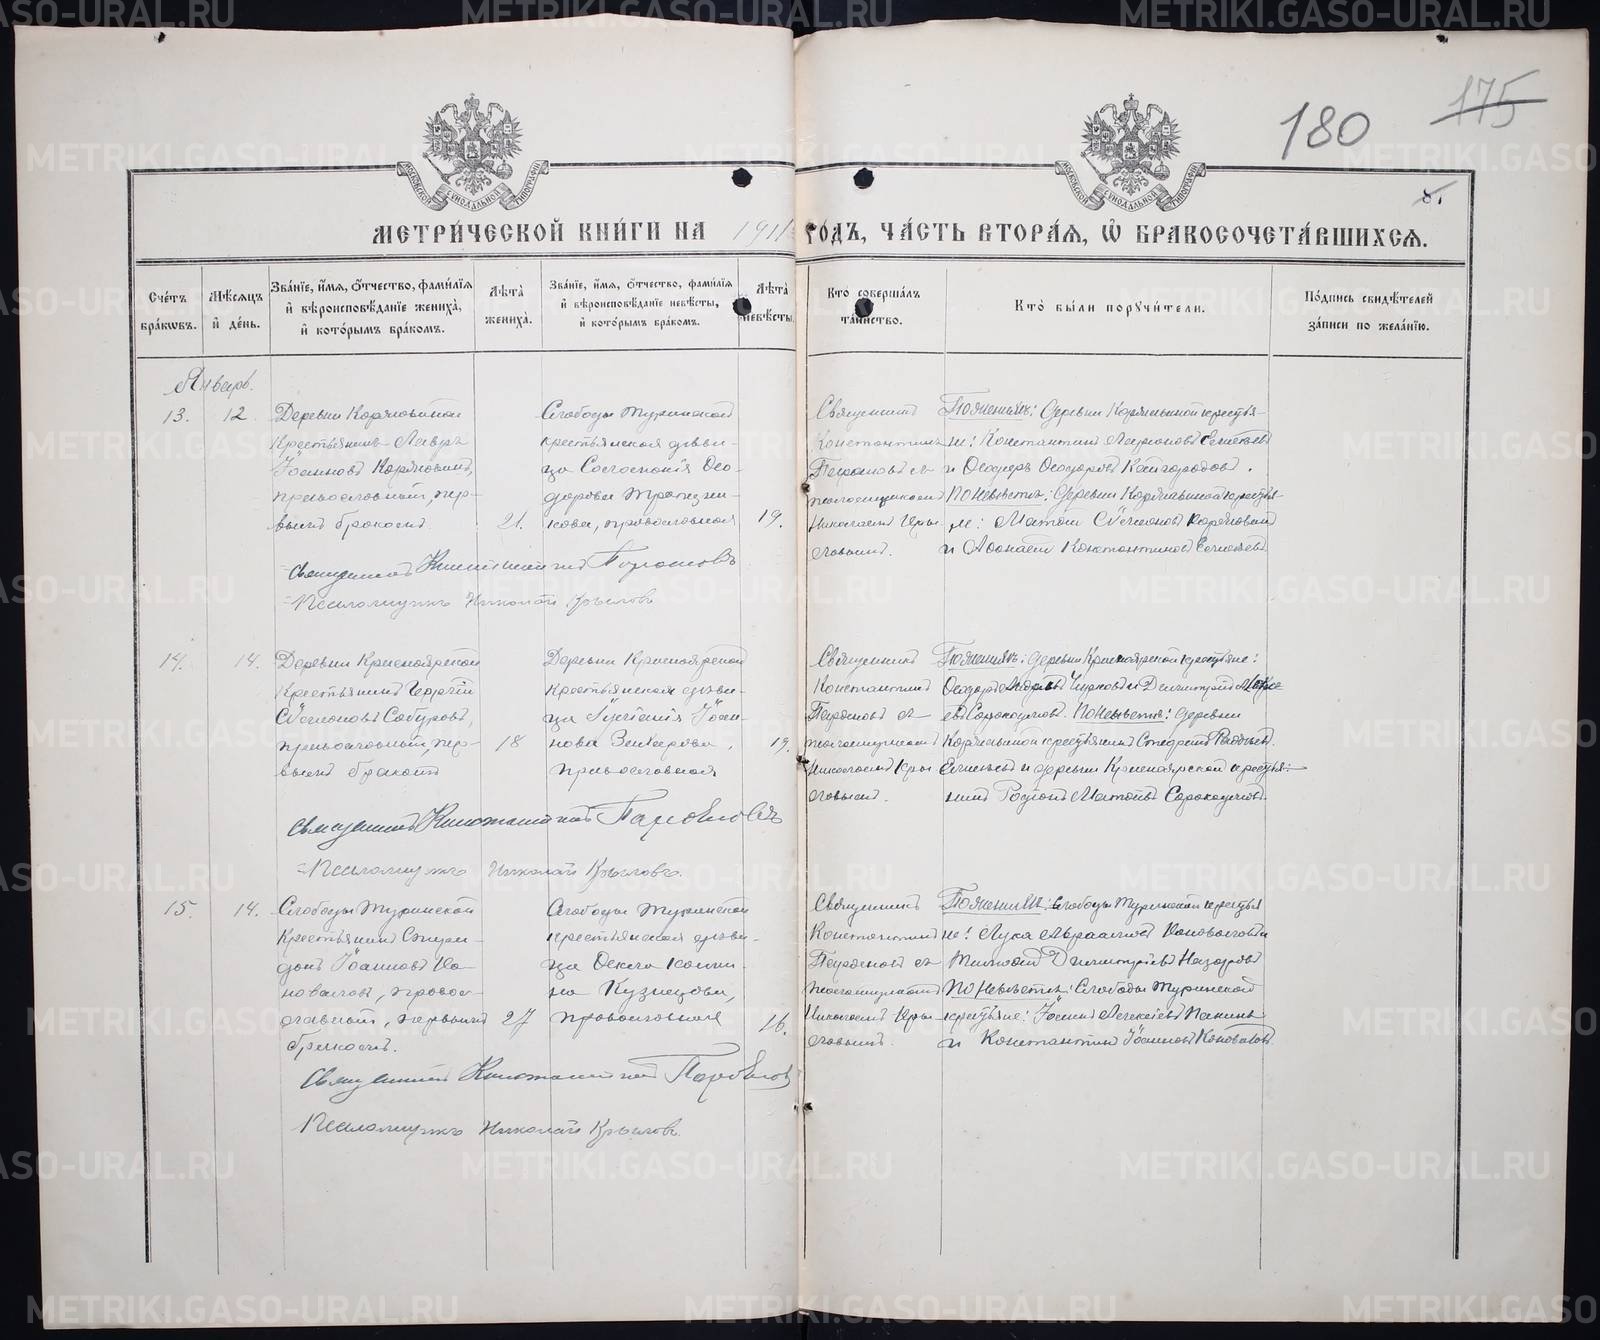 180
175
5.
МОСКОВСКОЙ СѴНОДАЛЬНОЙ ТИПОГРАФІИ
МОСКОВСКОЙ СѴНОДАЛЬНОЙ ТИПОГРАФІИ
МЕТРИ́ЧЕСКОЙ КНИ́ГИ НА 1911 ГО́ДЪ, ЧА́СТЬ ВТОРА́Я, Ѡ БРАКОСОЧЕТА́ВШИХСЯ.
Сче́тъ бра́кѡвъ.
Мѣ́сяцъ и҆ де́нь.
Зва́нїе, и҆́мя, ѻ҆́тчество, фами́лїя и҆ вѣроисповѣ́данїе жениха̀, и҆ кото́рымъ бра́комъ.
Лѣ́та жениха̀.
Зва́нїе, и҆́мя, ѻ҆́тчество, фами́лїя и҆ вѣроисповѣ́данїе невѣ́сты, и҆ кото́рымъ бра́комъ.
Лѣ́та невѣ́сты.
Кто̀ соверша́лъ та́инство.
Кто̀ бы́ли порꙋчи́тели.
По́дпись свидѣ́телей за́писи по жела́нїю.
Январь.
13.
12.
Деревни Коряковиной
Крестьянинъ Лавръ
Іоанновъ Коряковинъ,
православный, пер-
вымъ бракомъ.
21.
Слободы Туринской
крестьянская дѣви-
ца Соломонія Ѳео-
дорова Трапезни-
кова, православная
19.
Священникъ
Константинъ
Парѳеновъ съ
псаломщикомъ
Николаемъ Кры-
ловымъ.
По женихѣ: деревни Коряковиной крестья-
не: Константинъ
и Ѳеодоръ Ѳеодоровъ Кайгородовъ.
По невѣстѣ: деревни Коряковиной крестья-
не: Матѳей Сѵмеоновъ Коряковинъ
и Аѳанасій Константиновъ
Священникъ Константинъ Парѳеновъ
Псаломщикъ Николай Крыловъ
14.
14.
Деревни Красноярской
Крестьянинъ Георгій
Сѵмеоновъ Сабуровъ,
православный, пер-
вымъ бракомъ
18
Деревни Красноярской
Крестьянская дѣви-
ца Іоан-
нова
православная
19.
Священникъ
Константинъ
Парѳеновъ съ
псаломщикомъ
Николаемъ Кры
ловымъ.
По женихѣ: деревни Красноярской крестьяне:
Ѳеодоръ Чурковъ и Димитрій
Сорокоумовъ. По невѣстѣ: деревни
Коряковиной крестьянинъ
и деревни Красноярской крестья-
нинъ Родіонъ Матѳеевъ Сорокоумовъ.
Священникъ Константинъ Парѳеновъ
Псаломщикъ Николай Крыловъ.
15.
14.
Слободы Туринской
Крестьянинъ Спири-
донъ Іоанновъ Ко-
новаловъ, право-
славный, первымъ
бракомъ.
27
Слободы Туринской
крестьянская дѣви-
ца Ѳекла
Кузнецова,
православная
16.
Священникъ
Константинъ
Парѳеновъ съ
псаломщикомъ
Николаемъ Кры
ловымъ.
По женихѣ: Слободы Туринской крестья
не: Лука Авраамовъ Коноваловъ и
Тимоѳей Димитріевъ Назаровъ
По невѣстѣ: Слободы Туринской
крестьяне: Іоаннъ Алексіевъ Панинъ
и Константинъ Іоанновъ Коноваловъ.
Священникъ Константинъ Парѳеновъ
Псаломщикъ Николай Крыловъ.
METRIKI.GASO-URAL.RU